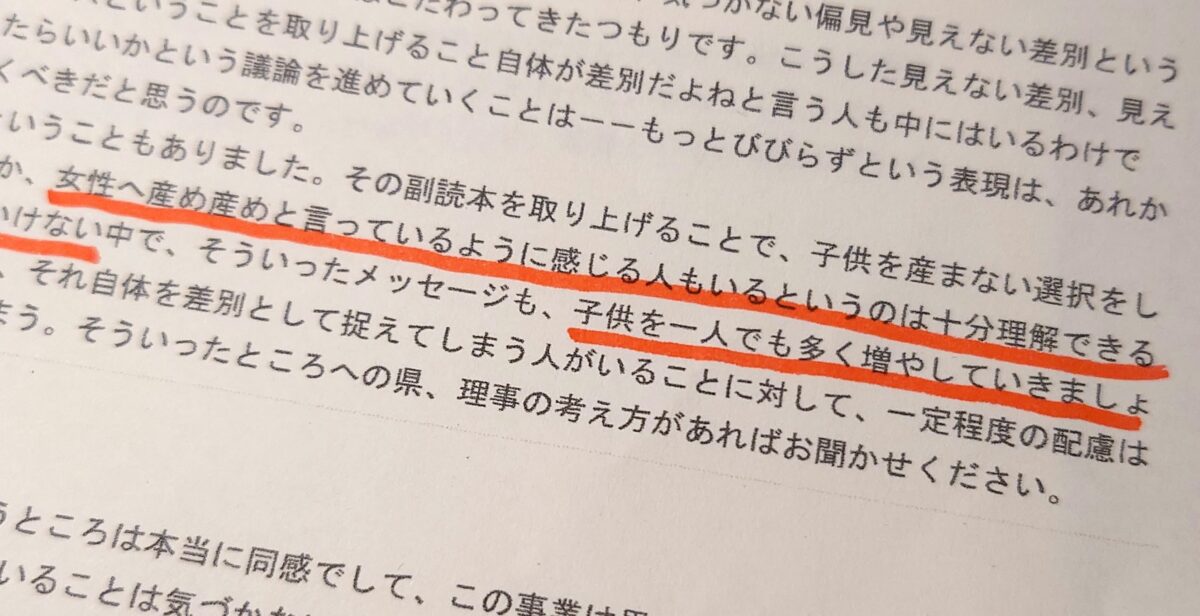 ということを取り上げること自体が差別だよねと言う人も中にはいるわけで
こだわってきたつもりです。こうした見えない差別、見え
気づかない偏見や見えない差別という
たらいいかという議論を進めていくことは――もっとびびらずという表現は、あれか
くべきだと思うのです。
ということもありました。その副読本を取り上げることで、子供を産まない選択をし
か、女性へ産め産めと言っているように感じる人もいるというのは十分理解できる
いけない中で、そういったメッセージも、子供を一人でも多く増やしていきましょ
、それ自体を差別として捉えてしまう人がいることに対して、一定程度の配慮は
まう。そういったところへの県、理事の考え方があればお聞かせください。
うところは本当に同感でして、この事業は
いることは気づかな